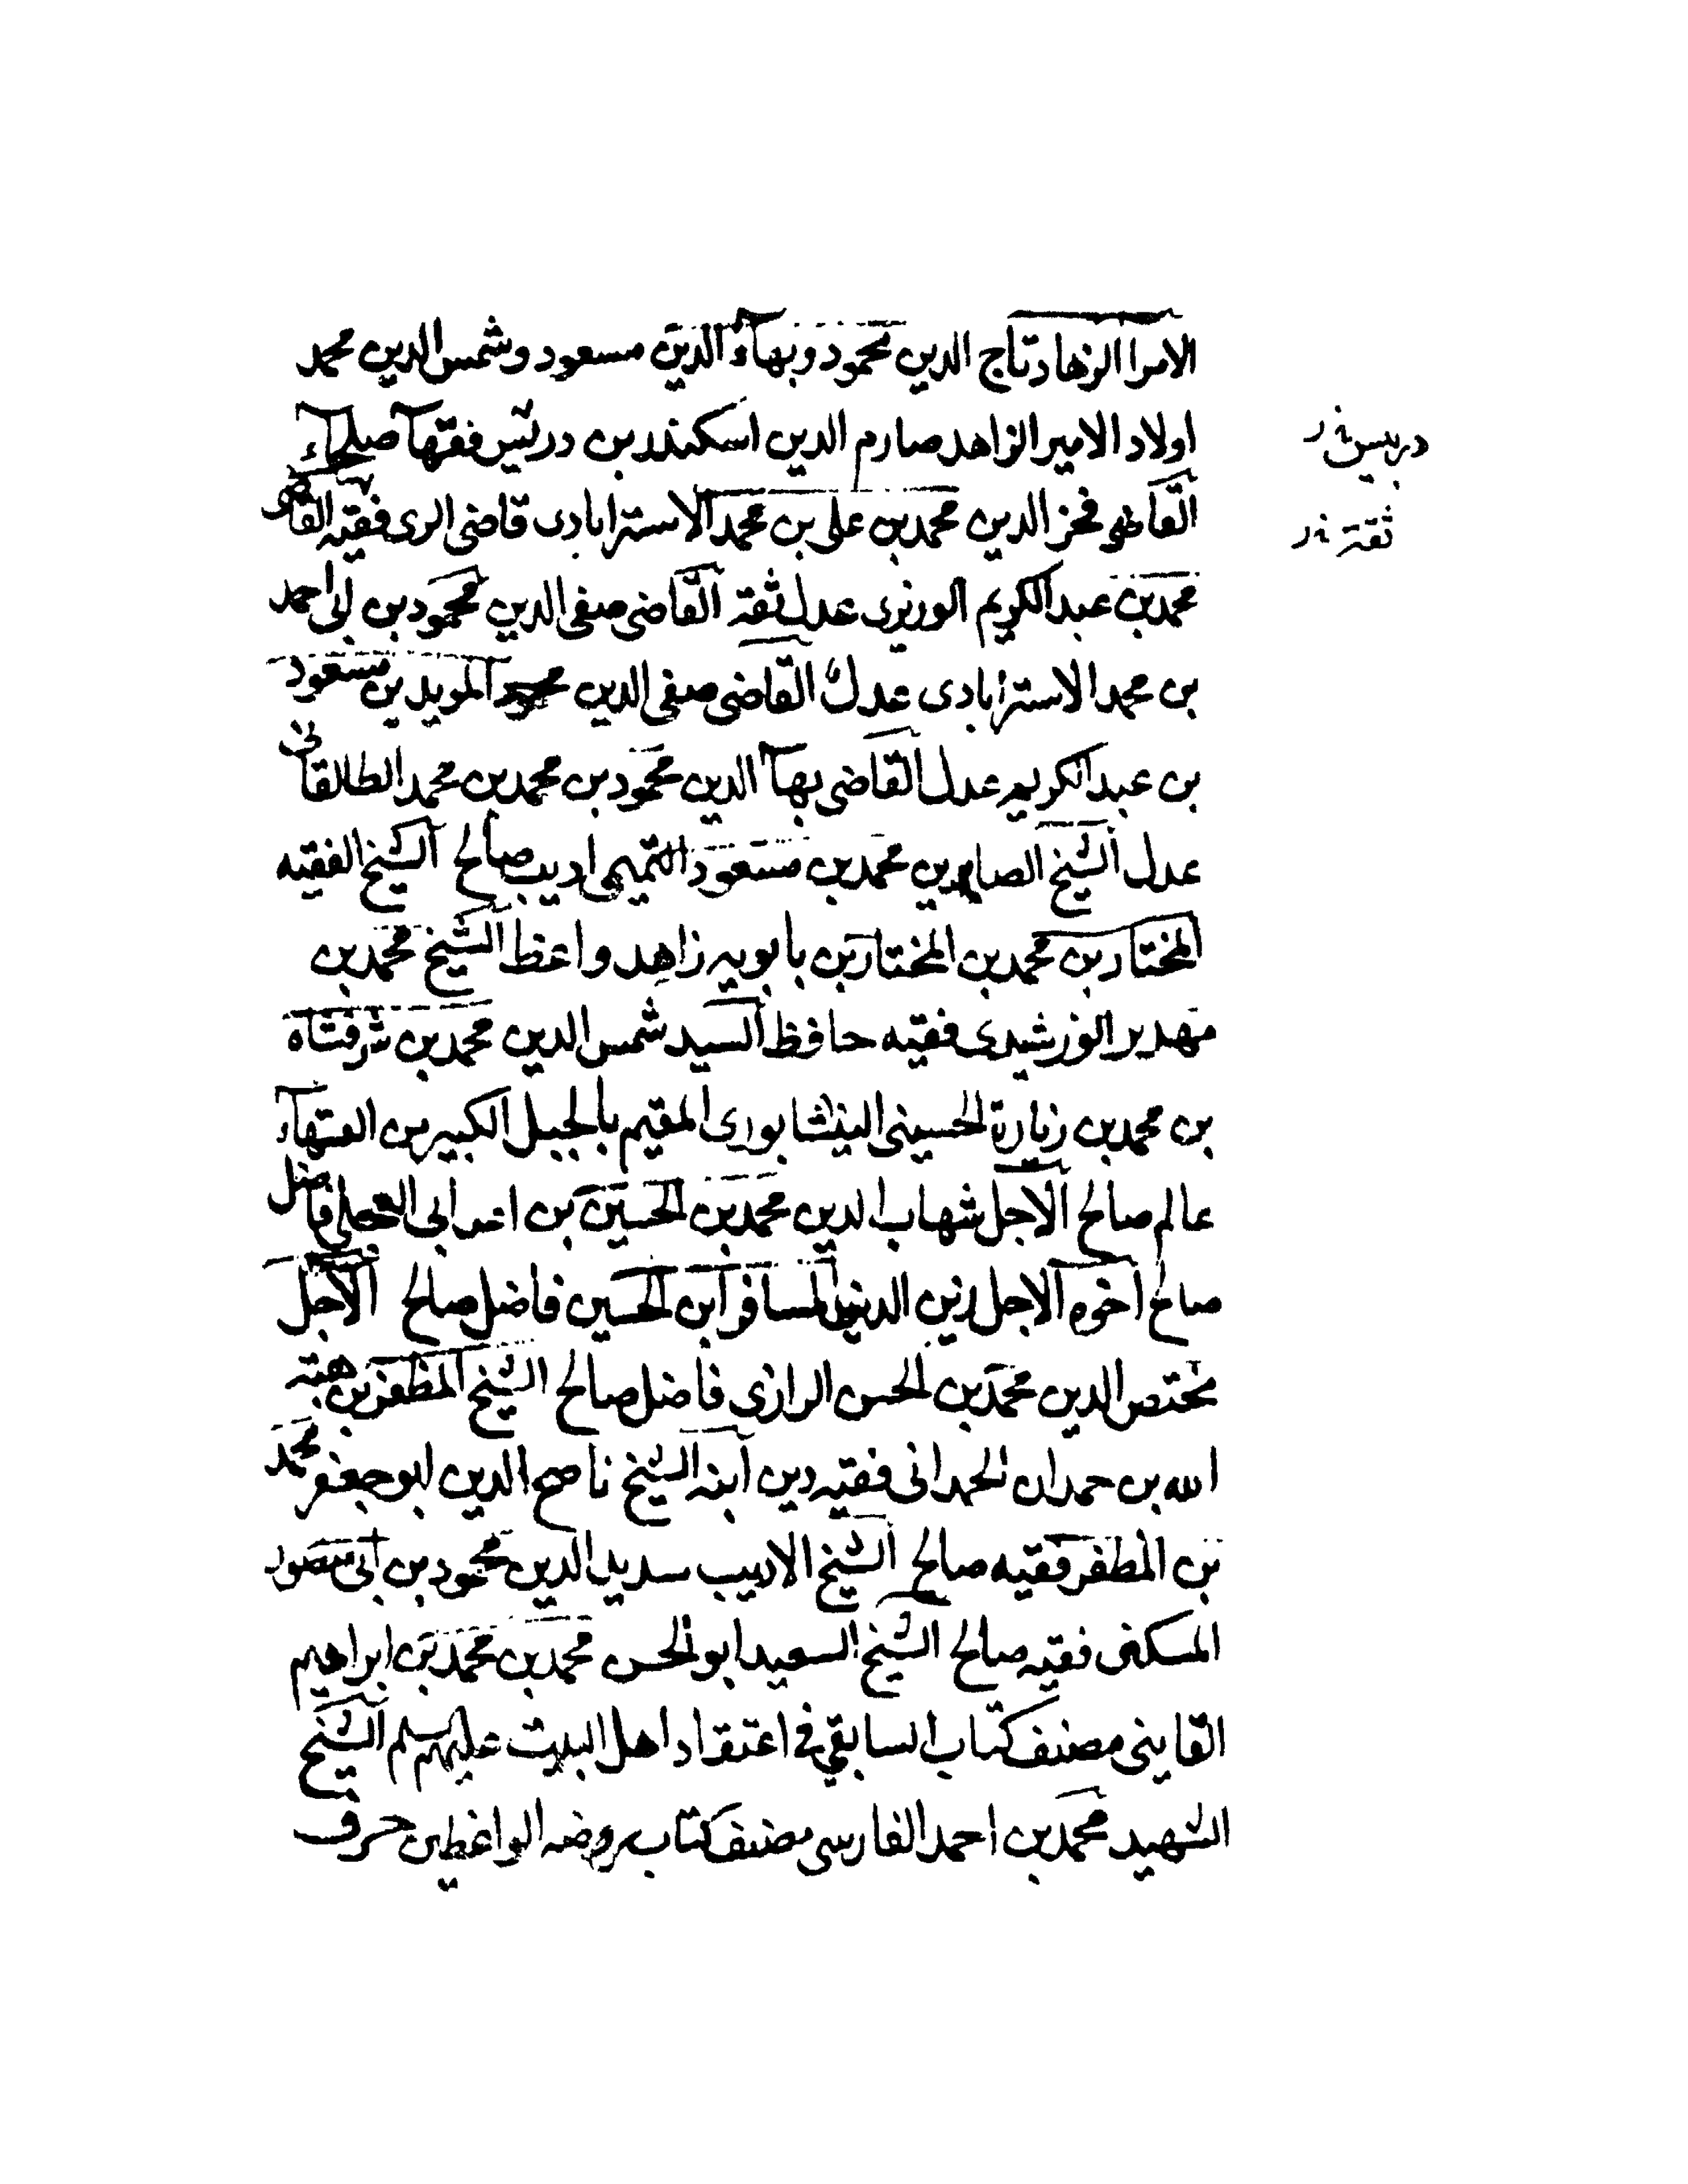 الامرا الزهاد تاج الدين محمود وبهاء الدين مسعود وشمس الدين محمد
اولاد الامير الزاهد صارم الدين اسكندر بن دربيس فقهآ صلحاء
دربيس
القاضى فخر الدين محمد بن على بن محمد الاسترابادى قاضى الرى فقيه القاضى
ثقة
محمد بن عبد الكريم الوزيرى عدل ثقة القاضى صفى الدين محمود بن ابى احمد
بن محمد الاسترابادى عدل القاضى صفى الدين المويد بن مسعود
بن عبد الكريم عدل القاضى بهآ الدين محمود بن محمد بن محمد الطالقانى
عدل الشيخ الصاير بن محمد بن مسعود التميمى اديب صالح الشيخ الفقيه
المختار بن محمد بن المختار بن بابويه زاهد واعظ الشيخ محمد بن
فقيه حافظ السيد شمس الدين محمد بن شرفشاه
بن محمد بن زيارة الحسينى النيشابورى المقيم بالجبل الكبير من الفقهاء
عالم صالح الاجل شهاب الدين محمد بن الحسين بن اعرابى العجلى فاضل
صالح اخوه الاجل زين الدين المسافر ابن الحسين فاضل صالح الاجل
مختص الدين محمد بن الحسن الرازى فاضل صالح الشيخ المظفر بن هبة
الله بن حمدان الحمدانى فقيه دين ابنه الشيخ ناصح الدين ابو جعفر محمد
بن المظفر فقيه صالح الشيخ الاديب سديد الدين محمود بن ابى منصور
المسكنى فقيه صالح الشيخ السعيد ابو الحسن محمد بن محمد بن ابراهيم
القاينى مصنف كتاب السابقى فى اعتقاد اهل البيت عليهم سلم الشيخ
الشهيد محمد بن احمد الفارسى مصنف كتاب روضه الواعظين حرف